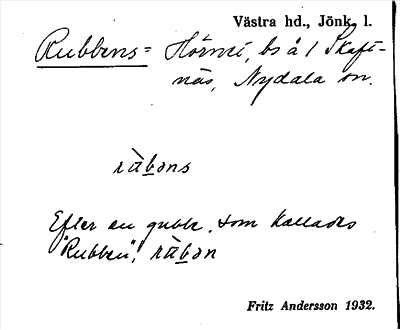 Västra hd., Jönk. l.
Rubbens= Hörnet, bs å / Skaft-
näs, Nydala sn.
ràbəns
Efter en gubbe, som kallades
"Rubben", ràbən
Fritz Andersson 1932.